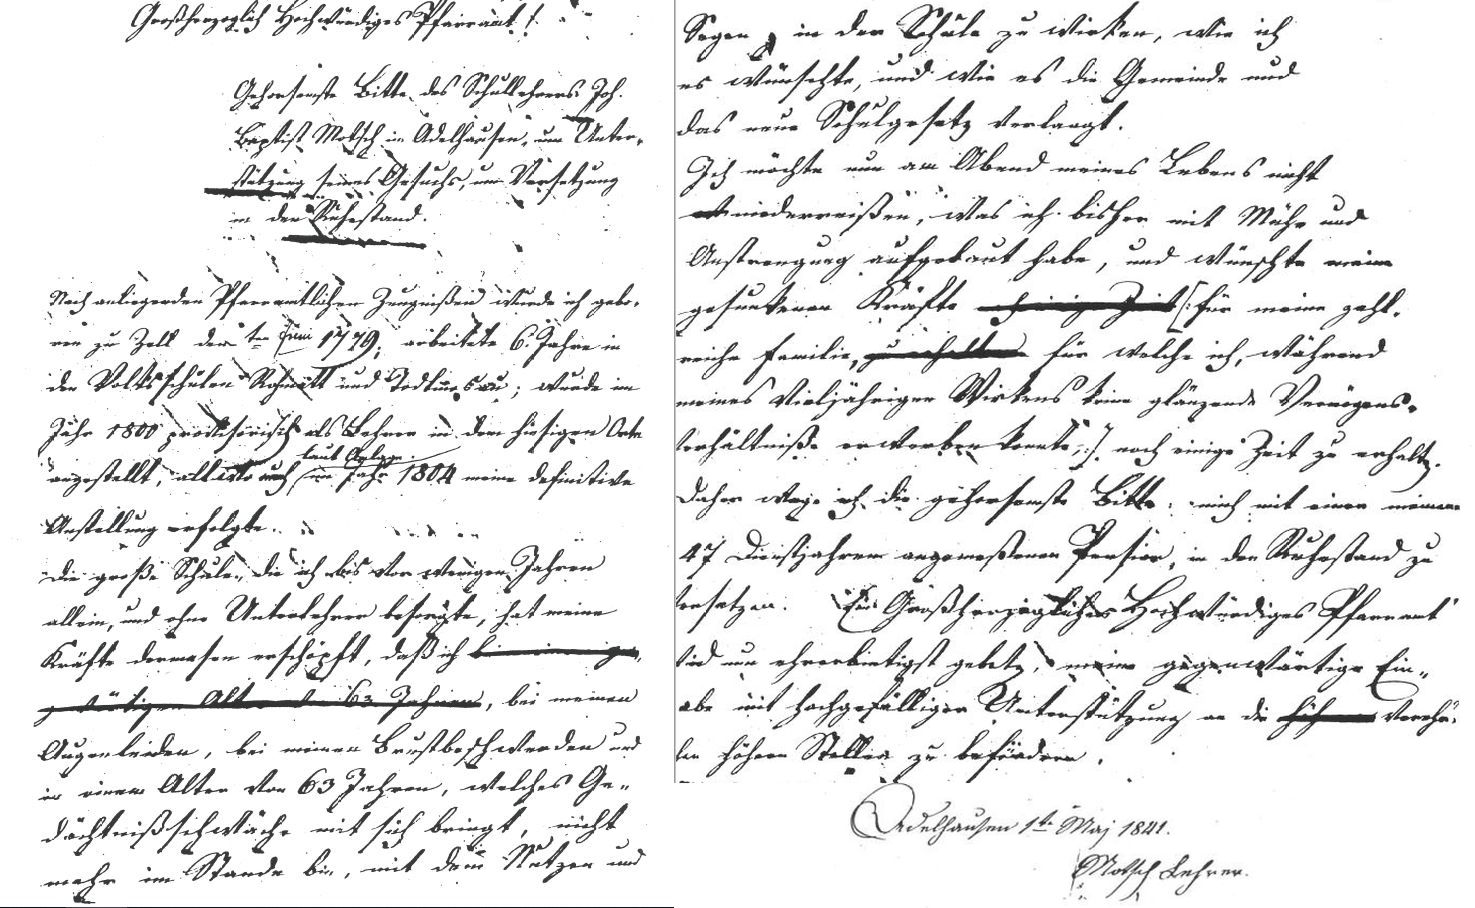 Großherzoglich Hochwürdiges Pfarramt!
Gehorsamste Bitte des Schullehrers Joh.
Baptist Motsch in Adelhausen, um Unter-
stützung seines Gesuchs, um Versetzung
in den Ruhestand.
Nach anliegenden Pfarramtlichen Zeugnißen wurde ich gebo-
ren zu Zell den ten Juni 1779, arbeitete 6 Jahre in
den Volksschulen Rohmatt und Todtmoosau; wurde im
Jahr 1800 provisorisch als Lehrer in dem hiesigen Orte
laut Anlage
angestellt, allwo auch im Jahr 1804 meine definitive
Anstellung erfolgte.
Die große Schule, die ich bis vor wenigen Jahren
allein, und ohne Unterlehrer besorgte, hat meine
Kräfte dermasen erschöpft, daß ich bei meinem ge-
genwärtigen Alter von 63 Jahren, bei meinen
Augenleiden, bei meinen Brustbeschwerden und
in einem Alter von 63 Jahren, welches Ge-
dächtnißschwäche mit sich bringt, nicht
mehr im Stande bin, mit dem Nutzen und
Segen in der Schule zu wirken, wie ich
es wünschte, und wie es die Gemeinde und
das neue Schulgesetz verlangt.
Ich möchte nun am Abend meines Lebens nicht
niederreißen, was ich bisher mit Mühe und
Anstrengung aufgebaut habe, und wünschte meine
gesunkenen Kräfte noch einige Zeit /: für meine zahl-
reiche Familie, zu erhalten für welche ich, während
meines vieljährigen Wirkens keine glänzende Vermögens-
verhältniße erwerben konnte, :/ noch einige Zeit zu erhalten.
Daher wage ich die gehorsamste Bitte: mich mit einer meinen
47 Dienstjahren angemeßenen Pension, in den Ruhestand zu
versetzen. Ein Großherzogliches Hochwürdiges Pfarramt
wird nun ehrerbietigst gebeten, meine gegenwärtige Ein-
gabe mit hochgefälliger Unterstützung an die höheren Verehr-
ten höhern Stellen zu befördern.
Adelhausen 1te Maj 1841.
Motsch Lehrer.